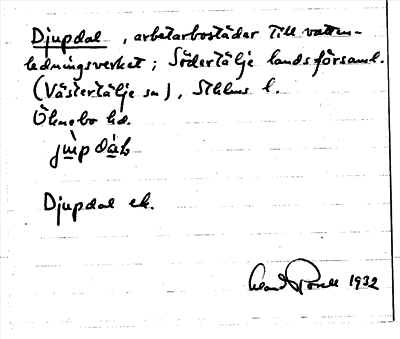 Djupdal, arbetarbostäder till vatten-
ledningsverket; Södertälje landsförsaml.
(Västertälje sn), Sthlms l.
Öknebo hd.
Djupdal ek.
1932